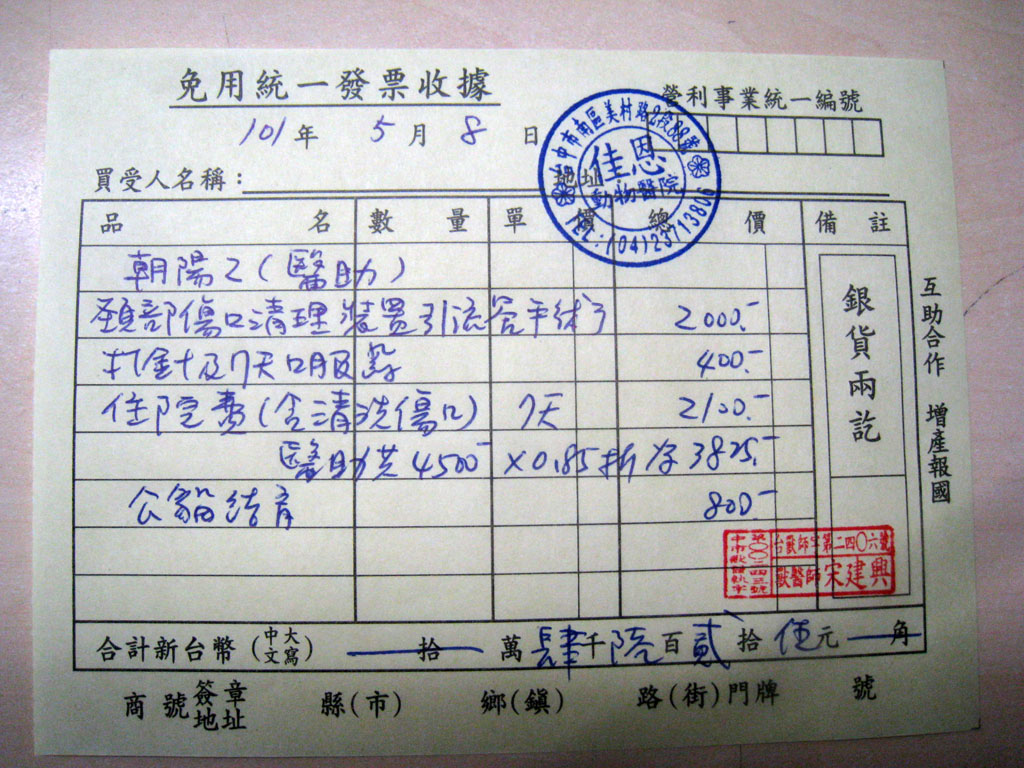 免用統一發票收據
營利事業統一編號
101年 5月 8日
買受人名稱: 地址
台中市南區美村路2段88號
佳恩
動物醫院
TEL:(04)23713806
品名 數量 單價 總價 備註
朝陽乙(醫助)
頚部傷口清理裝置引流管手術 2000.-
打針及7天口服藥 400.-
住院費(含清洗傷口) 7天 2100.-
醫助共4500- ×0.85折為3825.-
公貓結育 800-
銀貨兩訖
互助合作 增產報國
台獸師字第二四〇六號
獸醫師宋建興
合計新台幣(中文大寫) 拾 萬 肆千陸百貳拾伍元 角
商號簽章地址 縣(市) 鄉(鎮) 路(街)門牌 號